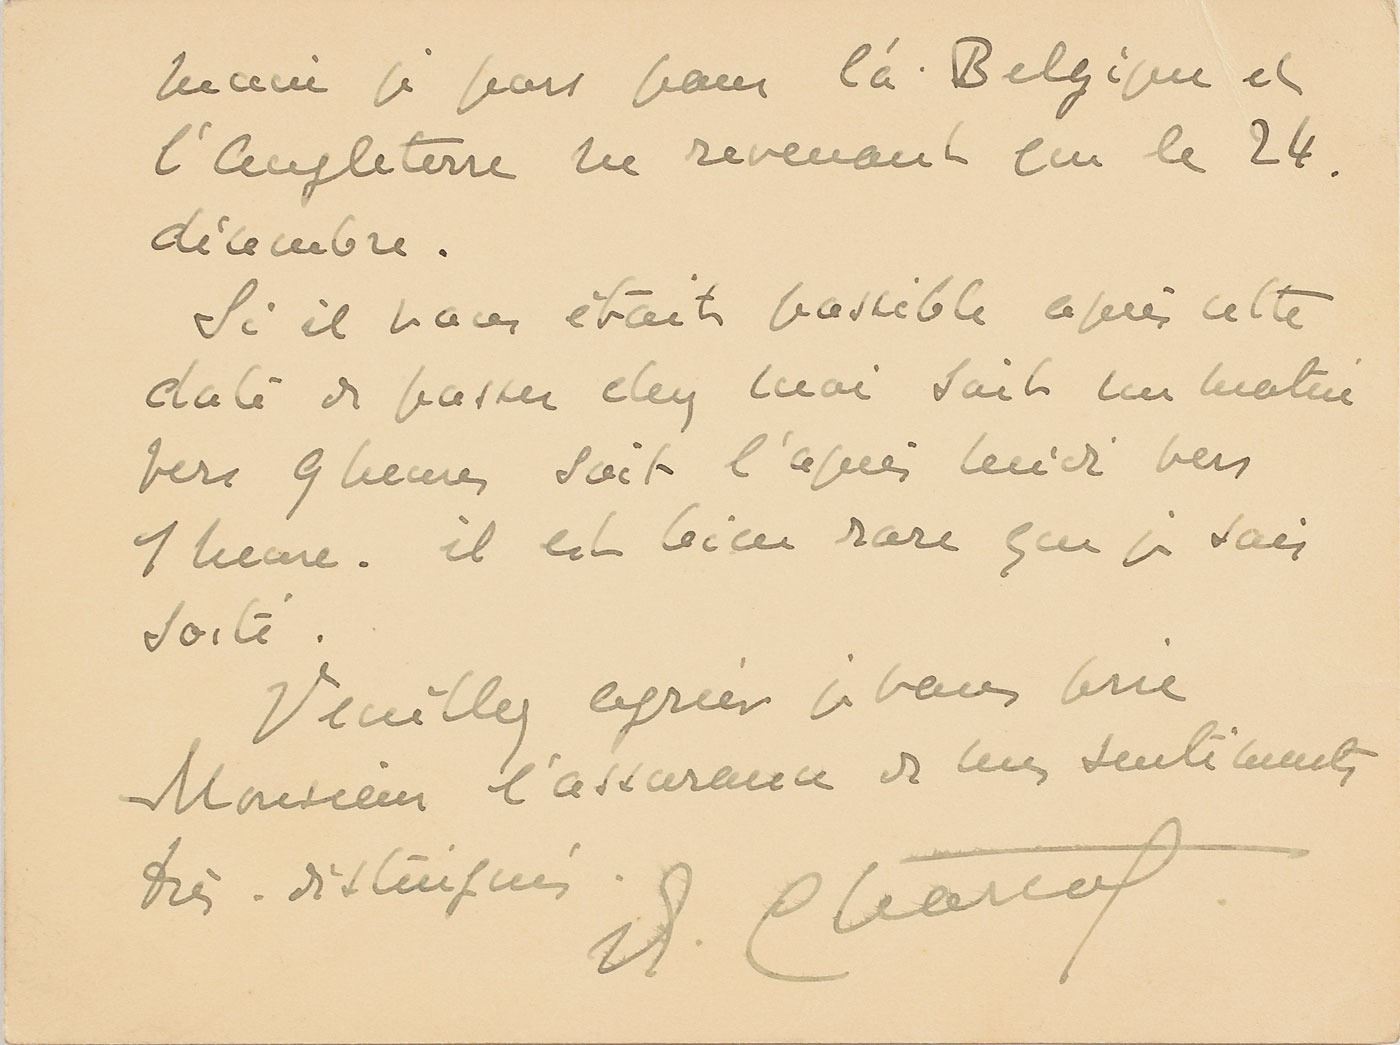 main je pars pour la Belgique et
l'Angleterre ne revenant que le 24.
décembre.
Si il vous était possible après cette
date de passer chez moi soit un matin
vers 9 heures soit l'après midi vers
1 heure. il est bien rare que je sois
sorti.
Veuillez agréer je vous prie
Monsieur l'assurance de mes sentiments
très-distingués.
J. Charcot